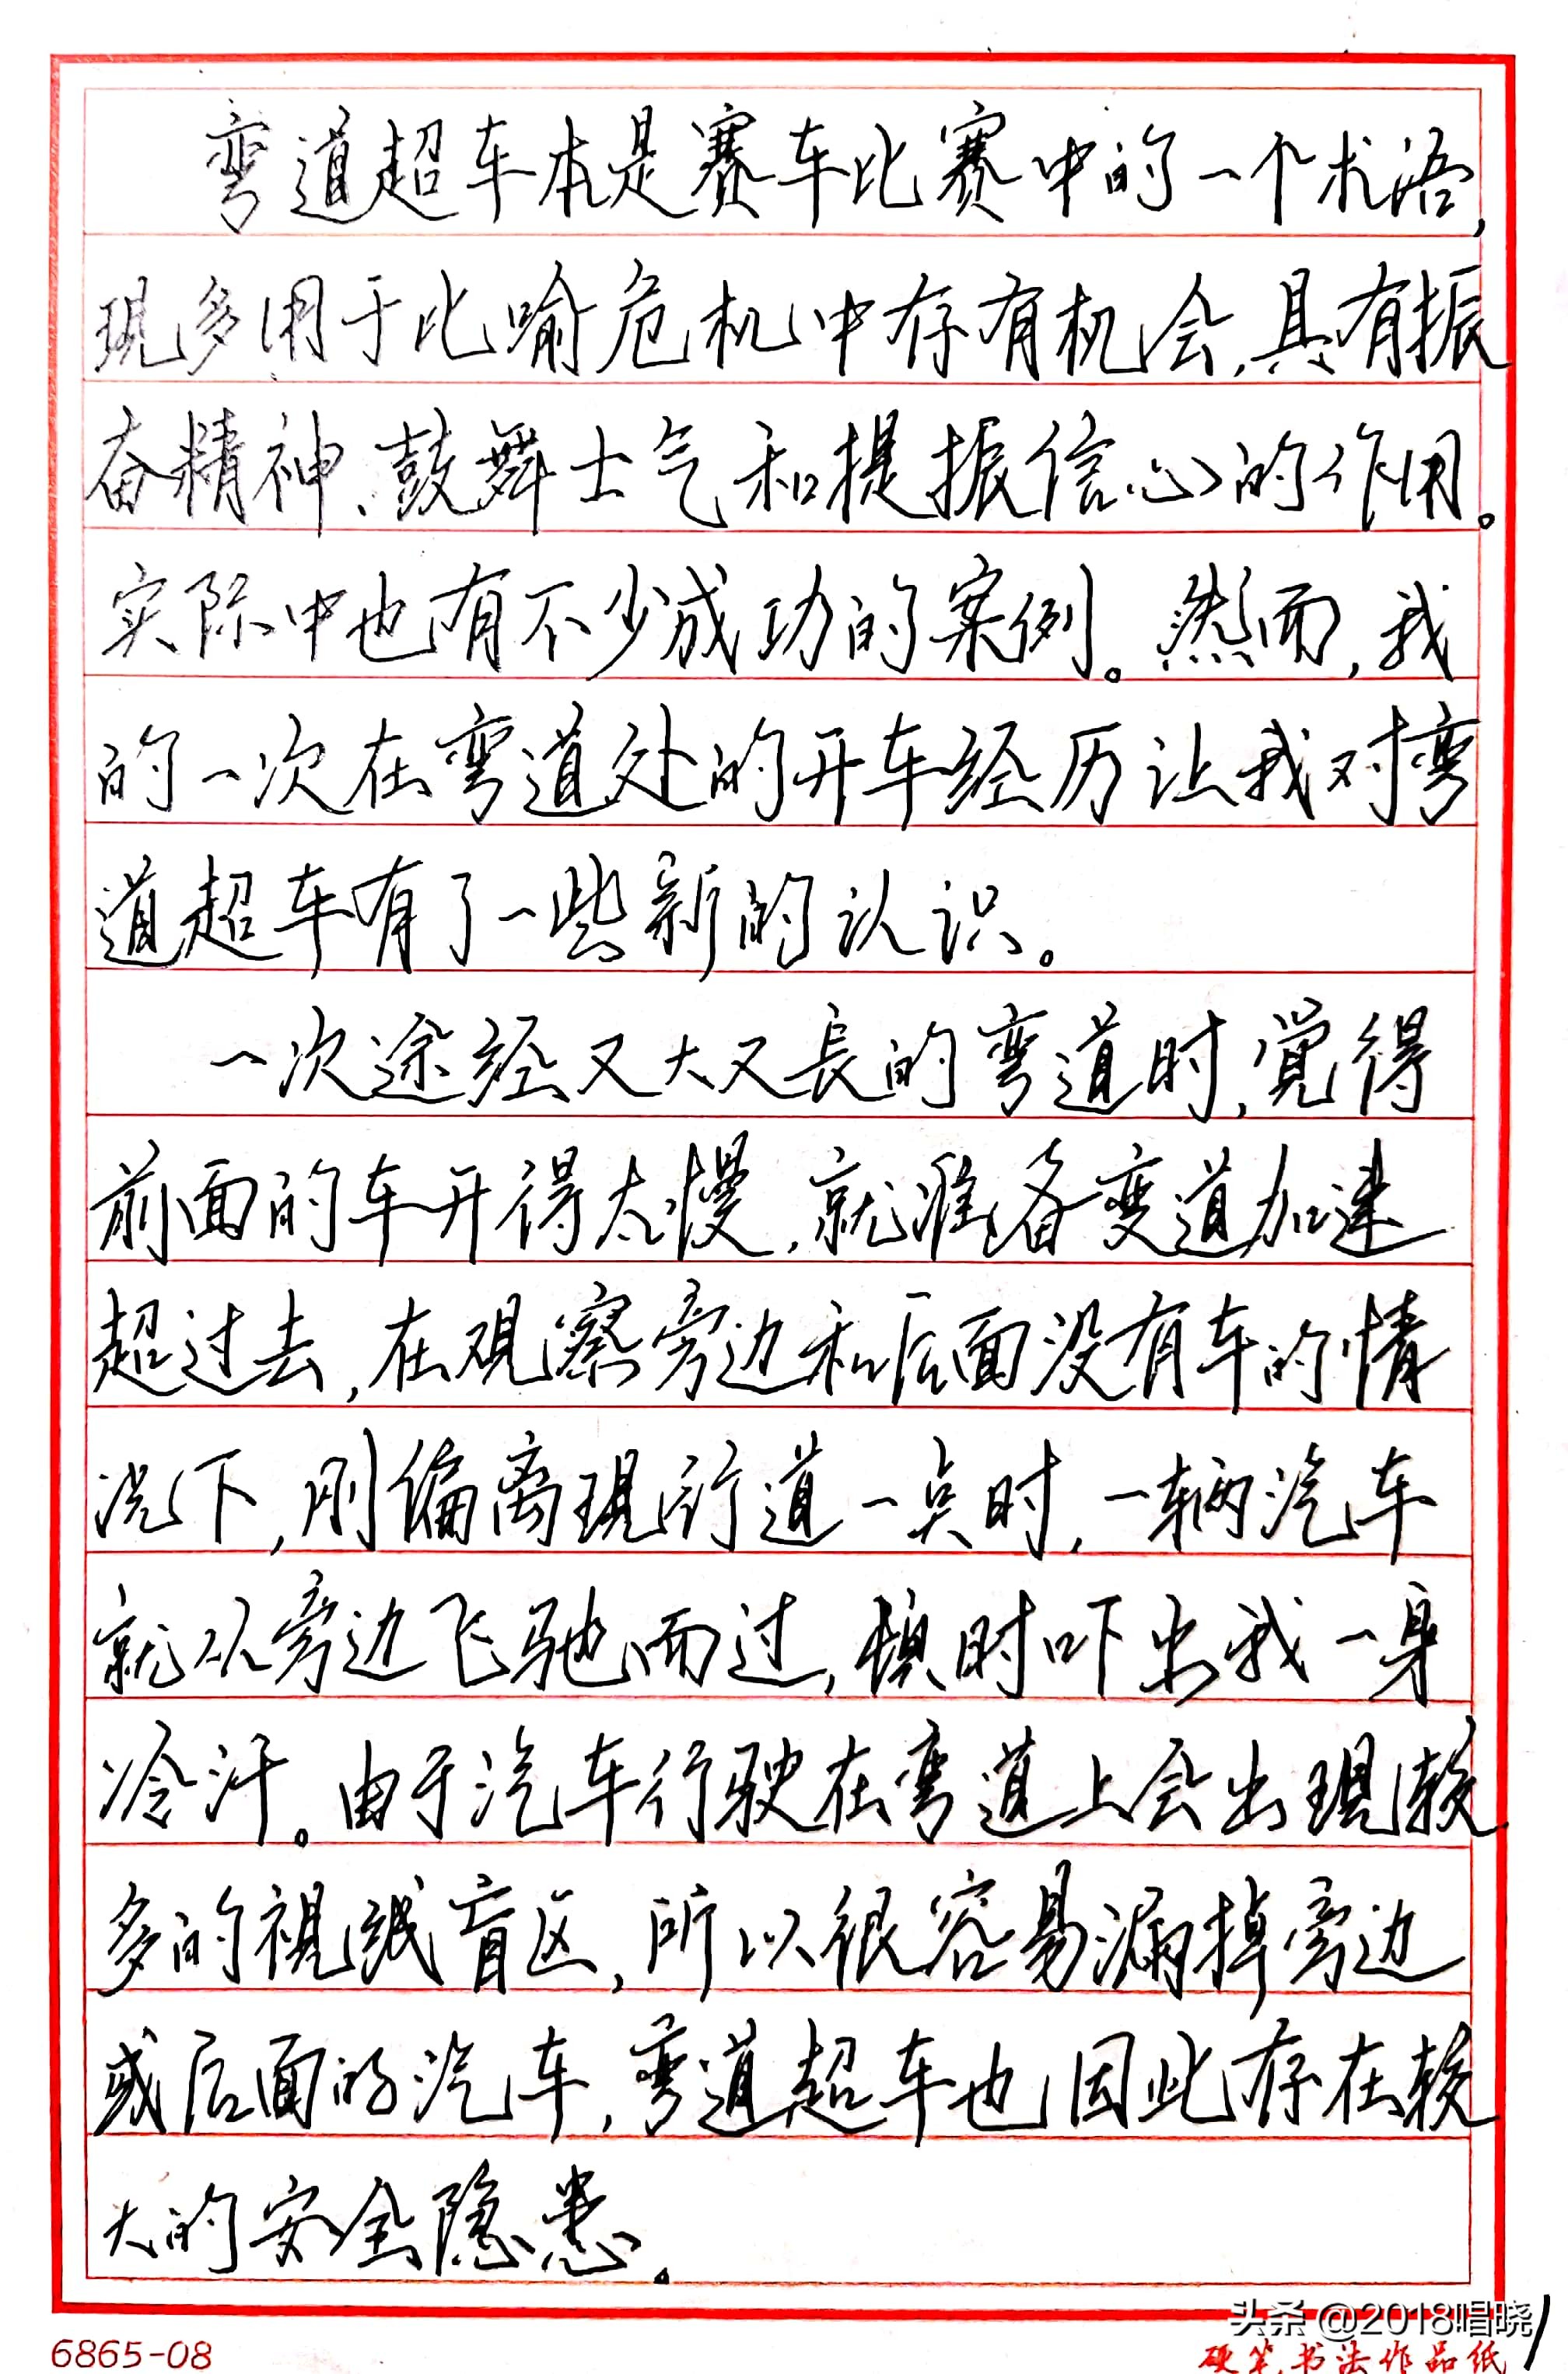 弯道超车本是赛车比赛中的一个术语,
现多用于比喻危机中存有机会,具有振
奋精神、鼓舞士气和提振信心的作用。
实际中也有不少成功的案例。然而,我
的一次在弯道处的开车经历让我对弯
道超车有了一些新的认识。
一次途经又大又長的弯道时,覚得
前面的车开得太慢,就准备变道加速
超过去,在观察旁边和后面没有车的情
况下,刚偏离现行道一点时,一辆汽车
就从旁边飞驰而过,顿时吓出我一身
冷汗。由于汽车行驶在弯道上会出现较
多的视线盲区,所以很容易漏掉旁边
或后面的汽车,弯道超车也因此存在较
大的安全隐患。
头条 @2018唱晓
6865-08
硬笔书法作品纸
1